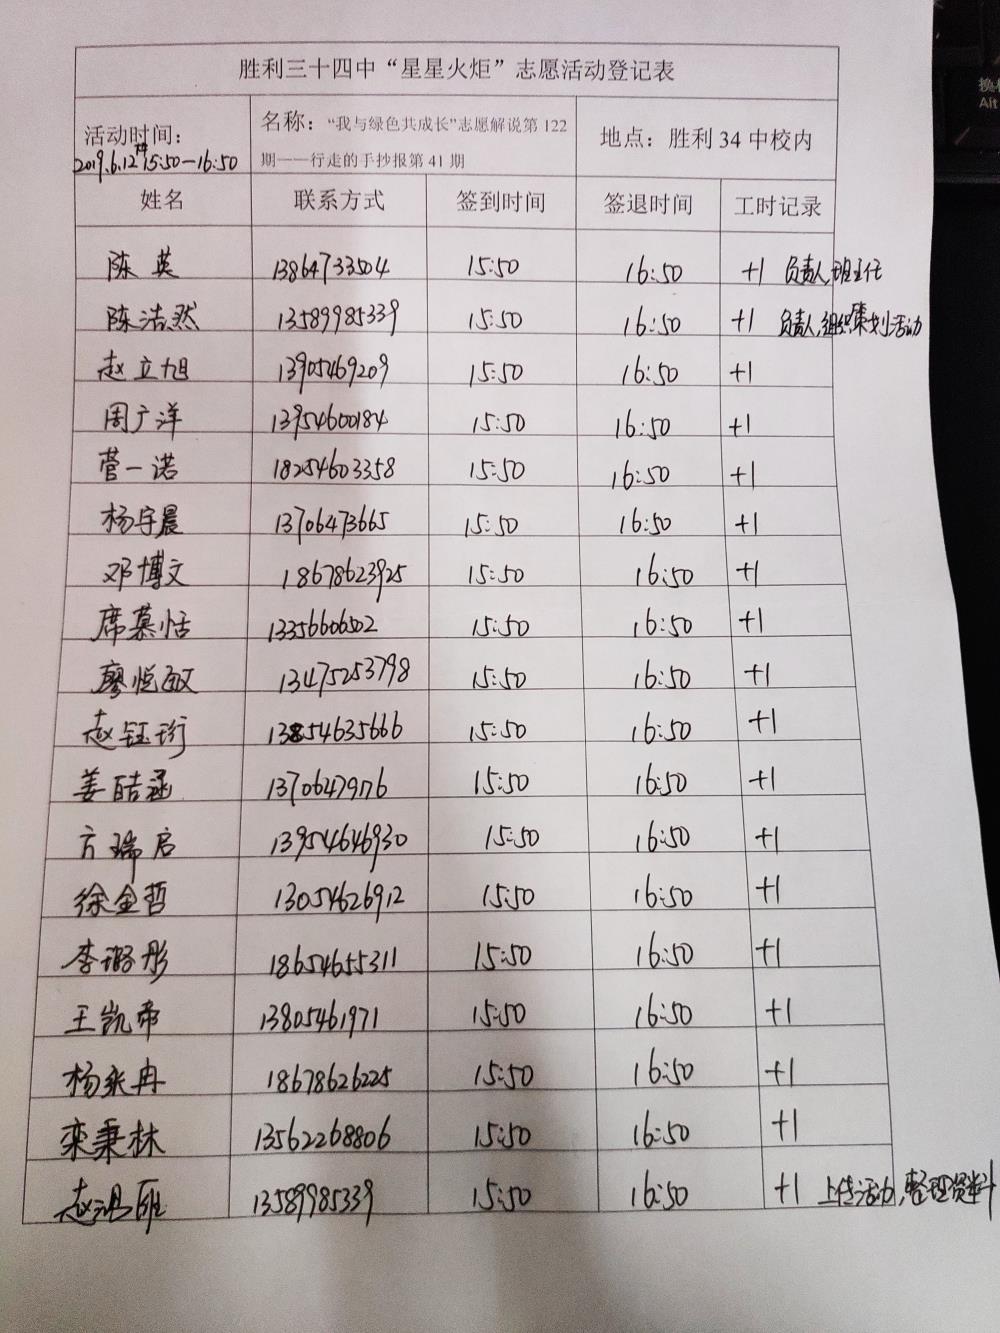 胜利三十四中“星星火炬”志愿活动登记表
活动时间：
2019.6.12 15:50—16:50
名称：“我与绿色共成长”志愿解说第 122
期——行走的手抄报第 41 期
地点：胜利 34 中校内
姓名 联系方式 签到时间 签退时间 工时记录
陈英 13864733504 15:50 16:50 +1 负责人,班主任
陈浩然 13589985339 15:50 16:50 +1 负责人,组织策划活动
赵立旭 13905469209 15:50 16:50 +1
周广洋 13954600184 15:50 16:50 +1
菅一诺 18254603358 15:50 16:50 +1
杨宇晨 13706473665 15:50 16:50 +1
邓博文 18678623925 15:50 16:50 +1
席慕恬 13356606502 15:50 16:50 +1
廖悦 13475253798 15:50 16:50 +1
赵钰珩 13854635666 15:50 16:50 +1
姜皓涵 15:50 16:50 +1
方瑞启 13954646930 15:50 16:50 +1
徐金哲 13054626912 15:50 16:50 +1
李璐彤 18654655311 15:50 16:50 +1
王凯帝 13805461971 15:50 16:50 +1
杨 冉 18678626225 15:50 16:50 +1
栾秉林 13562268806 15:50 16:50 +1
赵 13589985339 15:50 16:50 +1 上传活动,整理资料
Alt